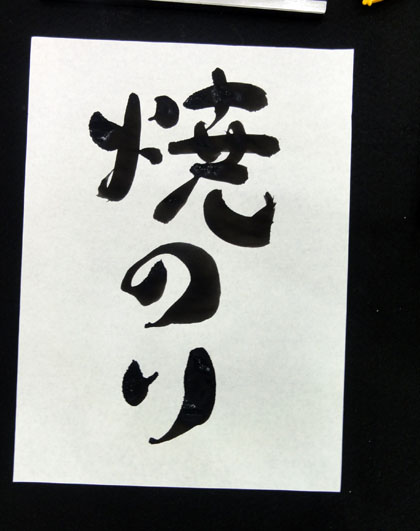 焼のり